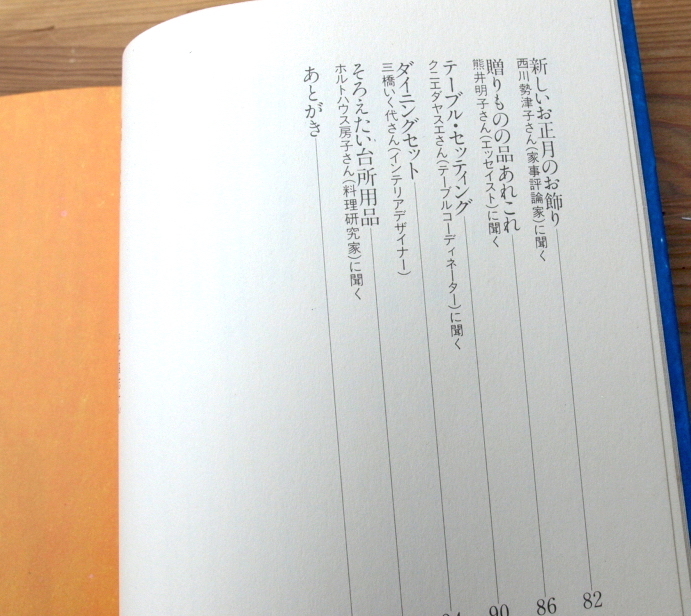 新しいお正月のお飾り
西川勢津子さん(家事評論家)に聞く
82
贈りものの品あれこれ
熊井明子さん(エッセイスト)に聞く
86
テーブル・セッティング
クニエダヤスエさん(テーブルコーディネーター)に聞く
90
ダイニングセット
三橋いく代さん(インテリアデザイナー)
そろえたい台所用品
ホルトハウス房子さん(料理研究家)に聞く
あとがき